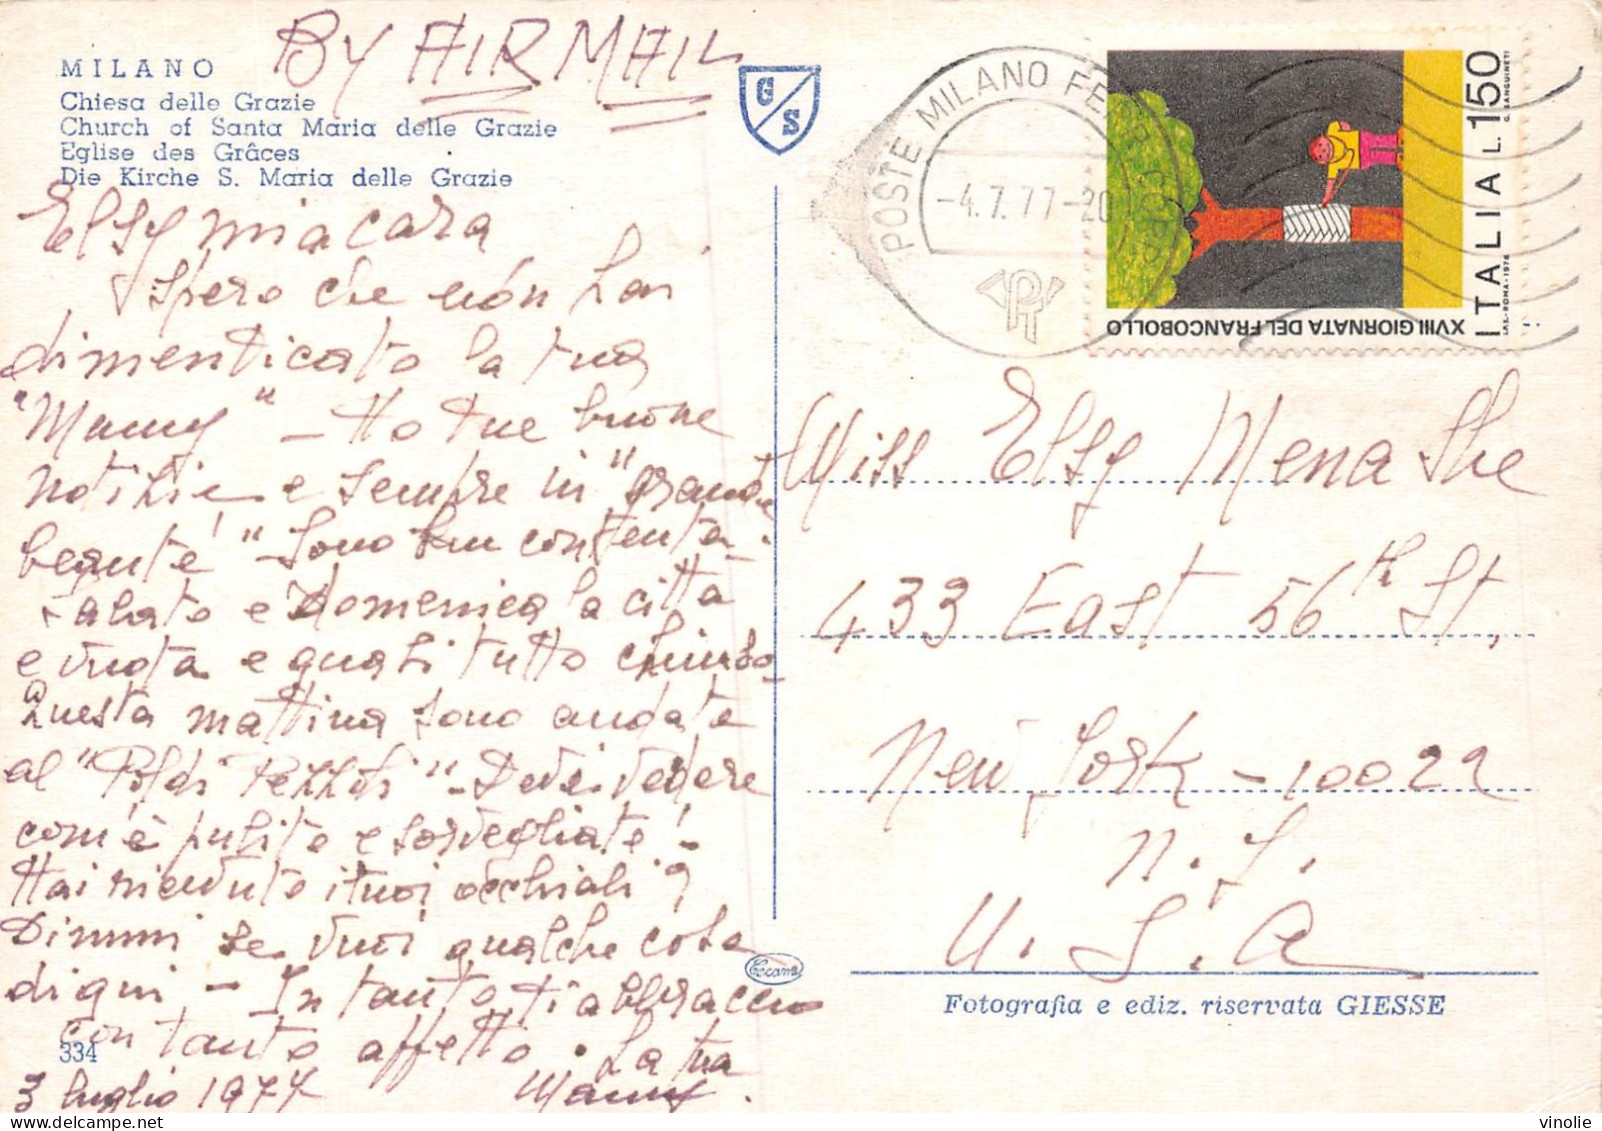 BY AIR MAIL
MILANO
Chiesa delle Grazie
Church of Santa Maria delle Grazie
Eglise des Grâces
Die Kirche S. Maria delle Grazie
G S
POSTE MILANO FERR. CORR.
-4.7.77-20
PT
ITALIA L.150
XVIII GIORNATA DEL FRANCOBOLLO
I.P.S.-ROMA-1976 G. SANGUINETI
Elsy mia cara
Spero che non hai
dimenticato la tua
"Mamy" - Ho tue buone
notizie e sempre in "grande
beauté" Sono ben contenta.
Sabato e Domenica la città
e vuota e quasi tutto chiuso-
Questa mattina sono andata
al "Poldi Pezzoli" - Devi vedere
com'è pulito e sorvegliato!-
Hai ricevuto i tuoi occhiali?
Dimmi se vuoi qualche cosa
di qui - In tanto ti abbraccio
con tanto affetto. La tua
Mamy.
3 luglio 1977
334
Miss Elsy Menashe
433 East 56th St,
New York - 10022
N. Y.
U. S. A
Cecami
Fotografia e ediz. riservata GIESSE
vinolie